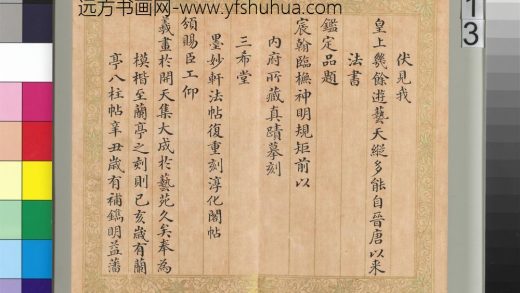 远方书画网-www.yfshuhua.com
13
伏見我
皇上幾餘遊藝天縱多能自晉唐以来
法書
鑑定品題
宸翰臨撫神明規矩前以
内府所藏真蹟摹刻
三希堂
墨妙軒法帖復重刻淳化閣帖
頒賜臣工仰
羲畫於開天集大成於藝苑久矣奉為
模楷至蘭亭之刻則己亥歲有蘭
亭八柱帖辛丑歲有補鐫明益藩